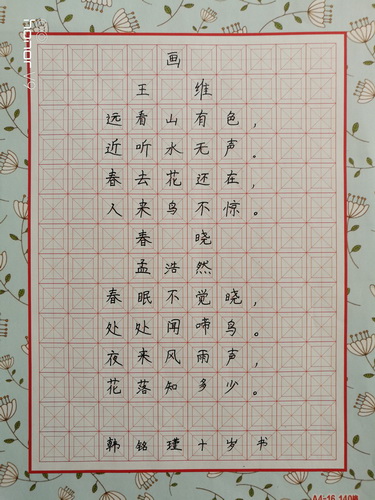 画
王维
远看山有色，
近听水无声。
春去花还在，
人来鸟不惊。
春晓
孟浩然
春眠不觉晓，
处处闻啼鸟。
夜来风雨声，
花落知多少。
韩铭瑾十岁书
A4-16 140格